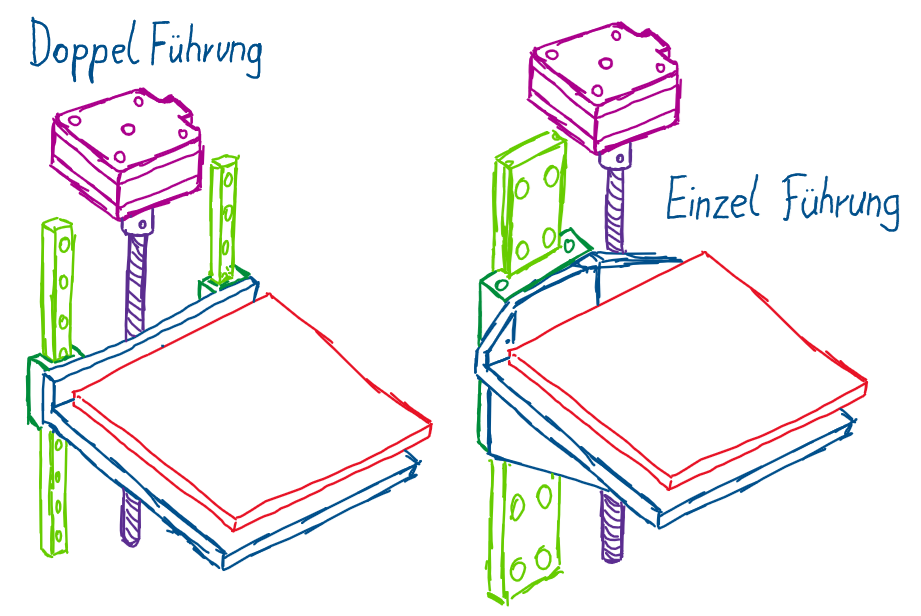 Doppel Führung
Einzel Führung